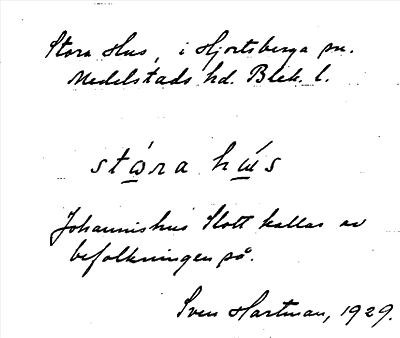 Stora Hus, i Hjortsberga sn.
Medelstads hd. Blek. l.
stɷ́ra hú̲s
Johannishus Slott kallas av
befolkningen så.
Sven Hartman, 1929.